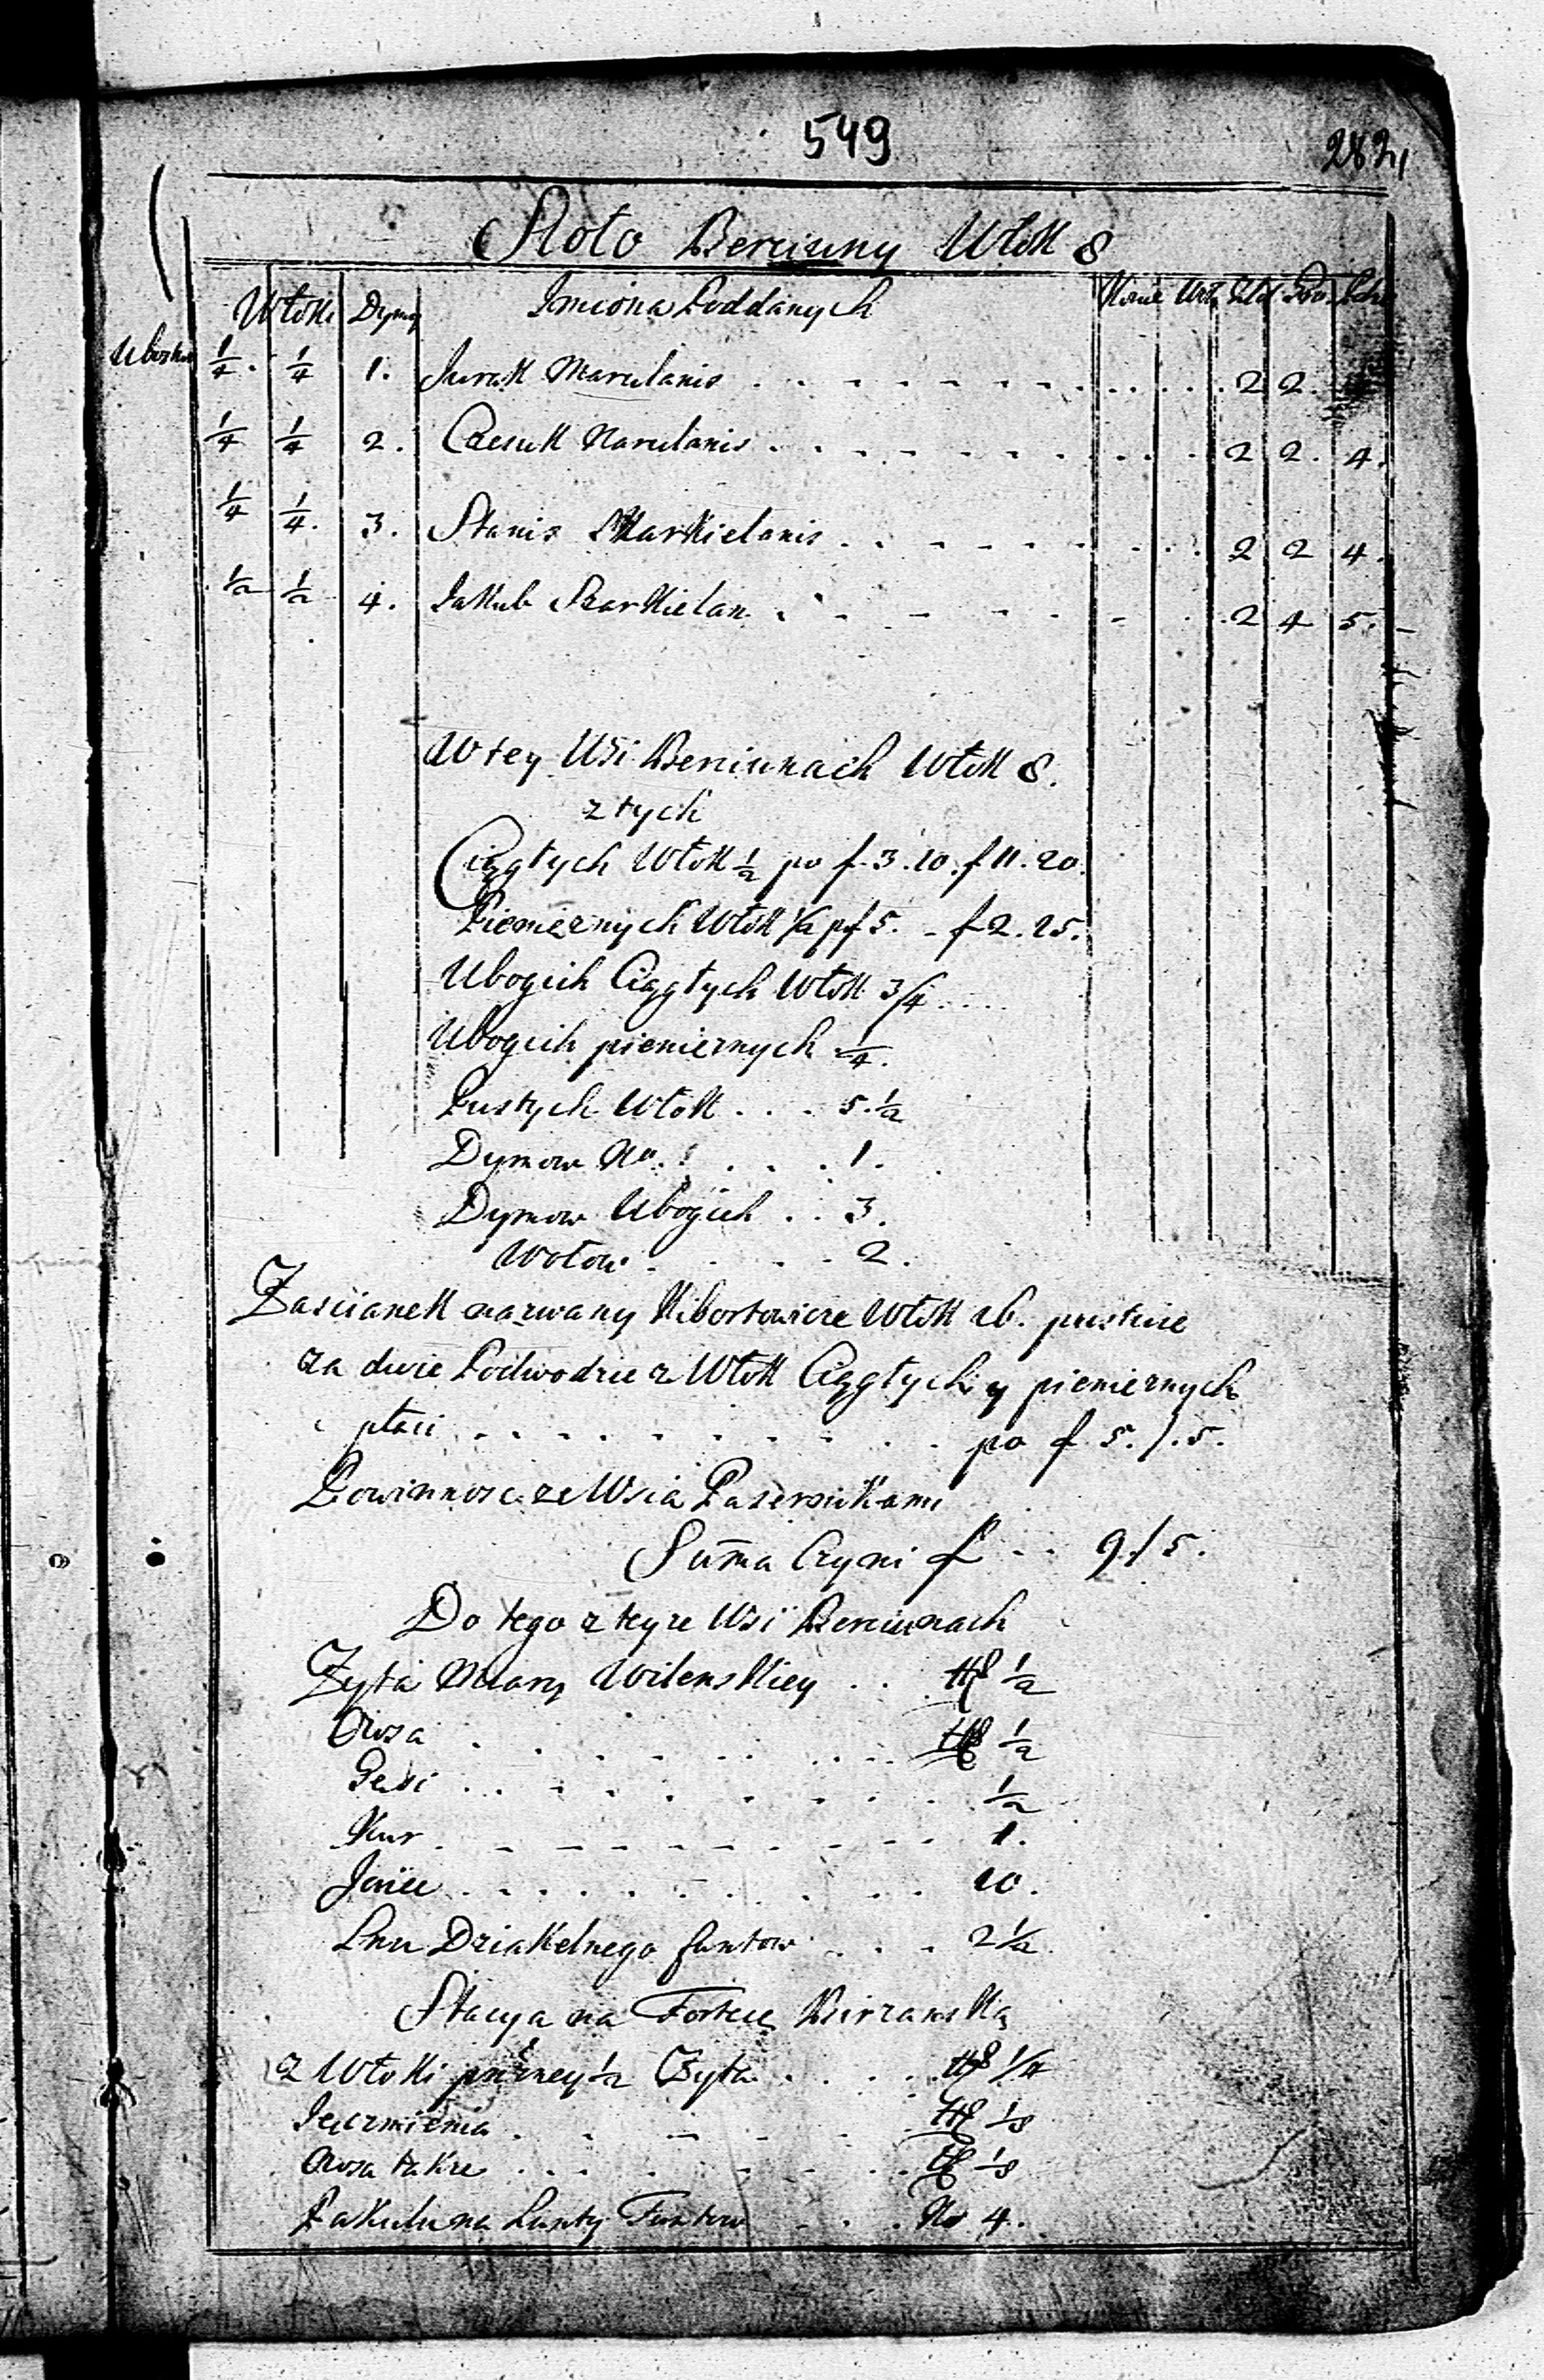 549
282
Słoto Berciuny Włok 8
Włoki Dymy Imiona Poddanych Konie
1/4. 1/4 1. Jurak Marulanis 2 2.
1/4 1/4 2. Czesuk Narulanis 2 2. 4.
1/4 1/4. 3. Stanis Markielanis 2 2 4.
1/2 1/2 4. Jakub Szarkielan 2 4 5.
W tey Wsi Berciunach Włok 8.
z tych
Ciągłych Włok 1/2 po f. 3.10. f 11.20.
Pienieznych Włok 1/2 pf 5. - f 2.25.
Ubogich Ciągłych Włok 3/4
Ubogich pienieznych 1/4.
Pustych Włok . . . 5.1/2
Dymow No. . . . 1.
Dymow Ubogich . . 3.
Wołow . . . 2.
Zascianek nazwany Kibortowicze Włok pustwie
za dwie Podwodzie z Włok Ciągłych y pienieznych
płaci . . . po f 5./.5.
Powinnosc ze Wsia Pasernikami
Suma Czyni f . . 9./5.
Do tego z teyze Wsi Berciunach
Zyta Miary Wilenskiey . . 1/2
Owsa . . . 1/2
Gesi . . . 1/2
Kur . . . 1.
Jaiec . . . 10.
Lnu Dziakelnego funtow . . . 2 1/2
Stacya na Fortece Birzanską
z Włoki 1/2 Zyta . . . 1/4
Jęczmienia . . . 1/8
Owsa takze . . . 1/8
Pakulu na Lunty Funtow . . . No 4.